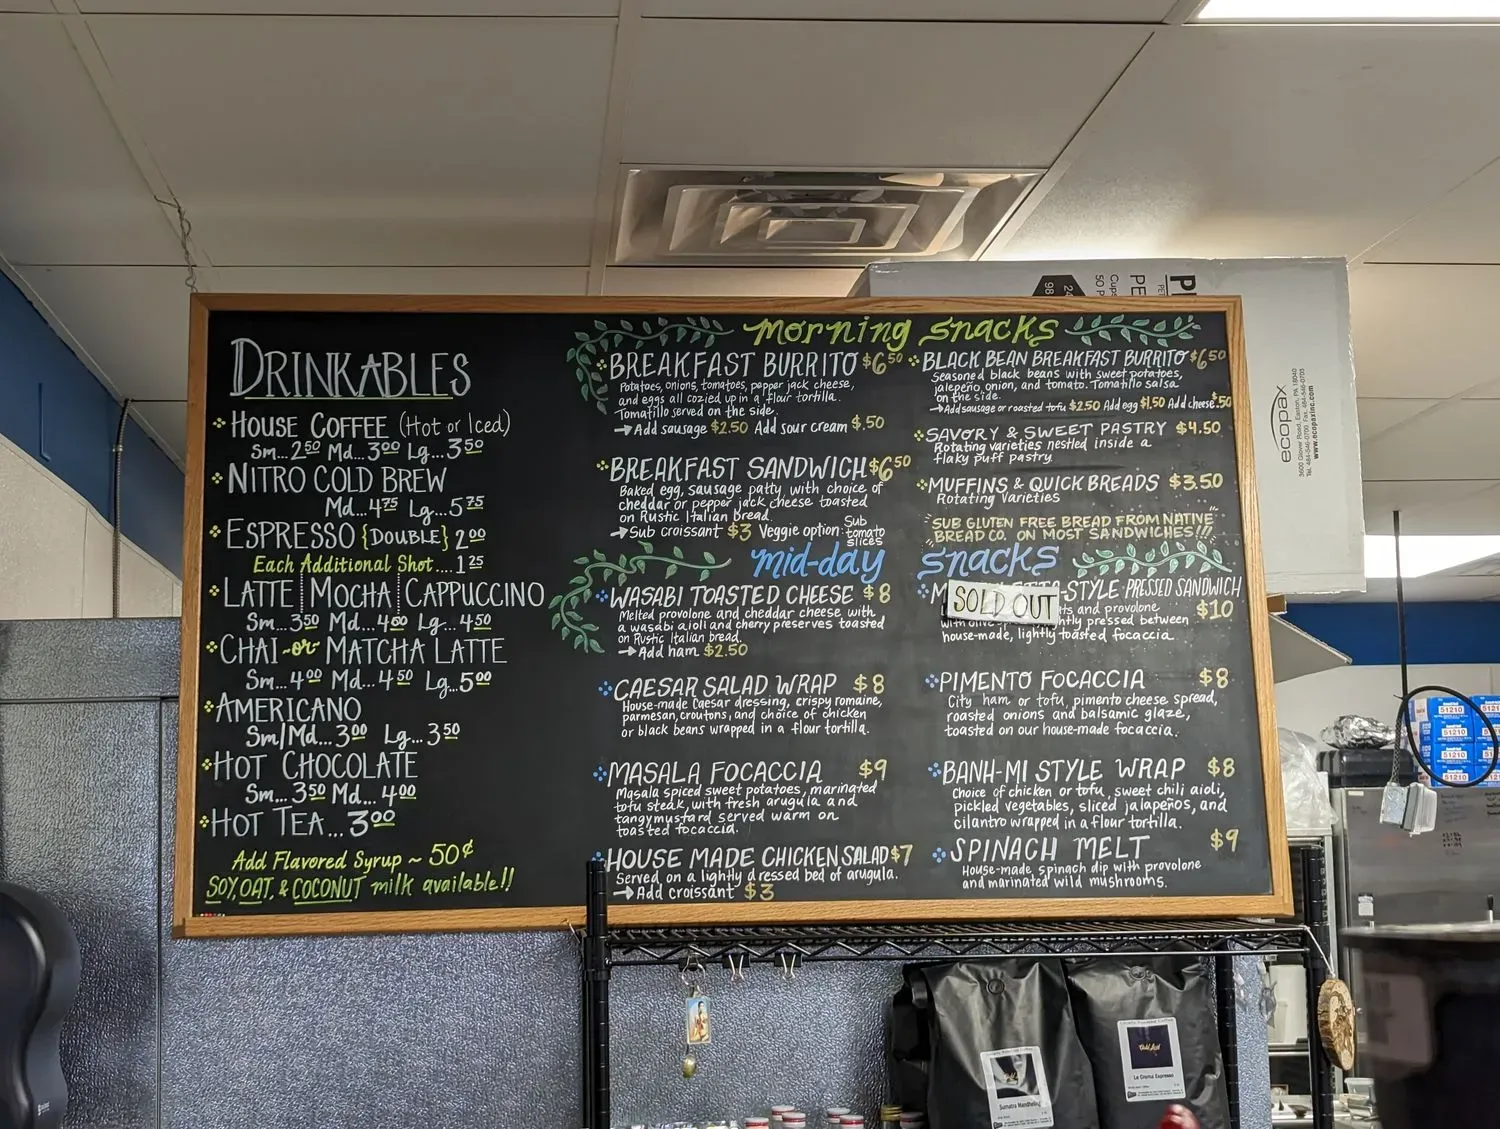 DRINKABLES
HOUSE COFFEE (Hot or Iced)
Sm...2.50 Md...3.00 Lg...3.50
NITRO COLD BREW
Md...4.75 Lg...5.75
ESPRESSO {DOUBLE} 2.00
Each Additional Shot....1.25
LATTE | MOCHA | CAPPUCCINO
Sm...3.50 Md...4.00 Lg...4.50
CHAI -or- MATCHA LATTE
Sm...4.00 Md...4.50 Lg...5.00
AMERICANO
Sm/Md...3.00 Lg...3.50
HOT CHOCOLATE
Sm...3.50 Md...4.00
HOT TEA...3.00
Add Flavored Syrup ~ 50¢
SOY, OAT, & COCONUT milk available!!
morning snacks
BREAKFAST BURRITO $6.50
Potatoes, onions, tomatoes, pepper jack cheese,
and eggs all cozied up in a flour tortilla.
Tomatillo served on the side.
→Add sausage $2.50 Add sour cream $.50
BREAKFAST SANDWICH $6.50
Baked egg, sausage patty with choice of
cheddar or pepper jack cheese toasted
on Rustic Italian Bread.
→Sub croissant $3 Veggie option: Sub tomato slices
BLACK BEAN BREAKFAST BURRITO $6.50
Seasoned black beans with sweet potatoes,
jalepeño, onion, and tomato. Tomatillo salsa
on the side.
→Add sausage or roasted tofu $2.50 Add egg $1.50 Add cheese $.50
SAVORY & SWEET PASTRY $4.50
Rotating varieties nestled inside a
flaky puff pastry.
MUFFINS & QUICK BREADS $3.50
Rotating Varieties
"SUB GLUTEN FREE BREAD FROM NATIVE
BREAD CO. ON MOST SANDWICHES!!!"
mid-day snacks
WASABI TOASTED CHEESE $8
Melted provolone and cheddar cheese with
a wasabi aioli and cherry preserves toasted
on Rustic Italian bread.
→Add ham $2.50
CAESAR SALAD WRAP $8
House-made Caesar dressing, crispy romaine,
parmesan, croutons, and choice of chicken
or black beans wrapped in a flour tortilla.
MASALA FOCACCIA $9
Masala spiced sweet potatoes, marinated
tofu steak, with fresh arugula and
tangy mustard served warm on
toasted focaccia.
HOUSE MADE CHICKEN SALAD $7
Served on a lightly dressed bed of arugula.
→Add croissant $3
SOLD OUT
-STYLE PRESSED SANDWICH
and provolone $10
pressed between
house-made, lightly toasted focaccia
PIMENTO FOCACCIA $8
City ham or tofu, pimento cheese spread,
roasted onions and balsamic glaze,
toasted on our house-made focaccia.
BANH-MI STYLE WRAP $8
Choice of chicken or tofu, sweet chili aioli,
pickled vegetables, sliced jalapeños, and
cilantro wrapped in a flour tortilla.
SPINACH MELT $9
House-made spinach dip with provolone
and marinated wild mushrooms.
ecopax
3600 Glover Road, Easton, PA 18040
www.ecopaxinc.com
51210
51210
51210
51210
La Crema Espresso